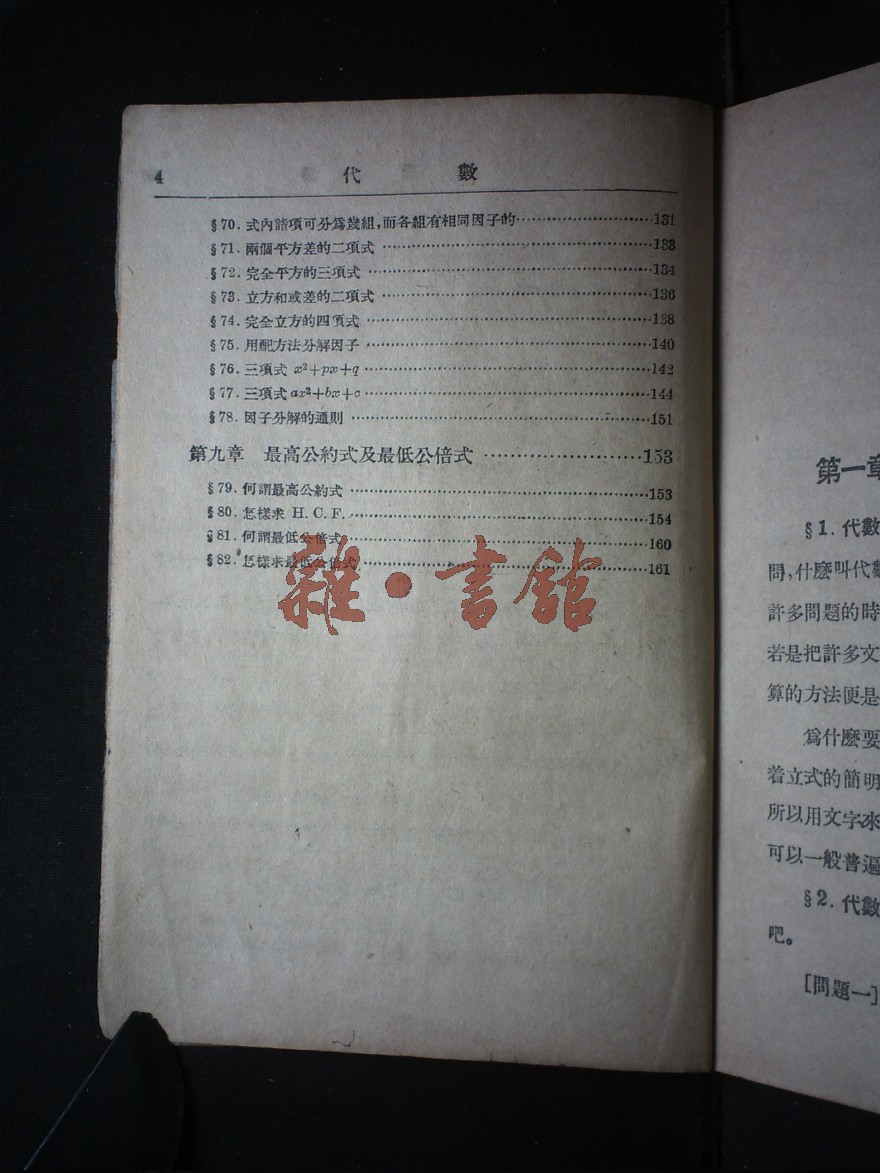 4 代 數
§70. 式內諸項可分爲幾組,而各組有相同因子的……………………131
§71. 兩個平方差的二項式……………………133
§72. 完全平方的三項式……………………134
§73. 立方和或差的二項式……………………136
§74. 完全立方的四項式……………………138
§75. 用配方法分解因子……………………140
§76. 三項式 x²+px+q……………………142
§77. 三項式 ax²+bx+c……………………144
§78. 因子分解的通則……………………151
第九章 最高公約式及最低公倍式……………………153
§79. 何謂最高公約式……………………153
§80. 怎樣求 H. C. F.……………………154
§81. 何謂最低公倍式……………………160
§82. 怎樣求最低公倍式……………………161
雜·書館
第一章
§1. 代數
問,什麼叫代數
許多問題的時
若是把許多文
算的方法便是
爲什麼要
着立式的簡明
所以用文字來
可以一般普遍
§2. 代數
吧。
[問題一]